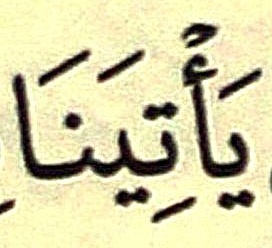 يَأْتِيَنَا